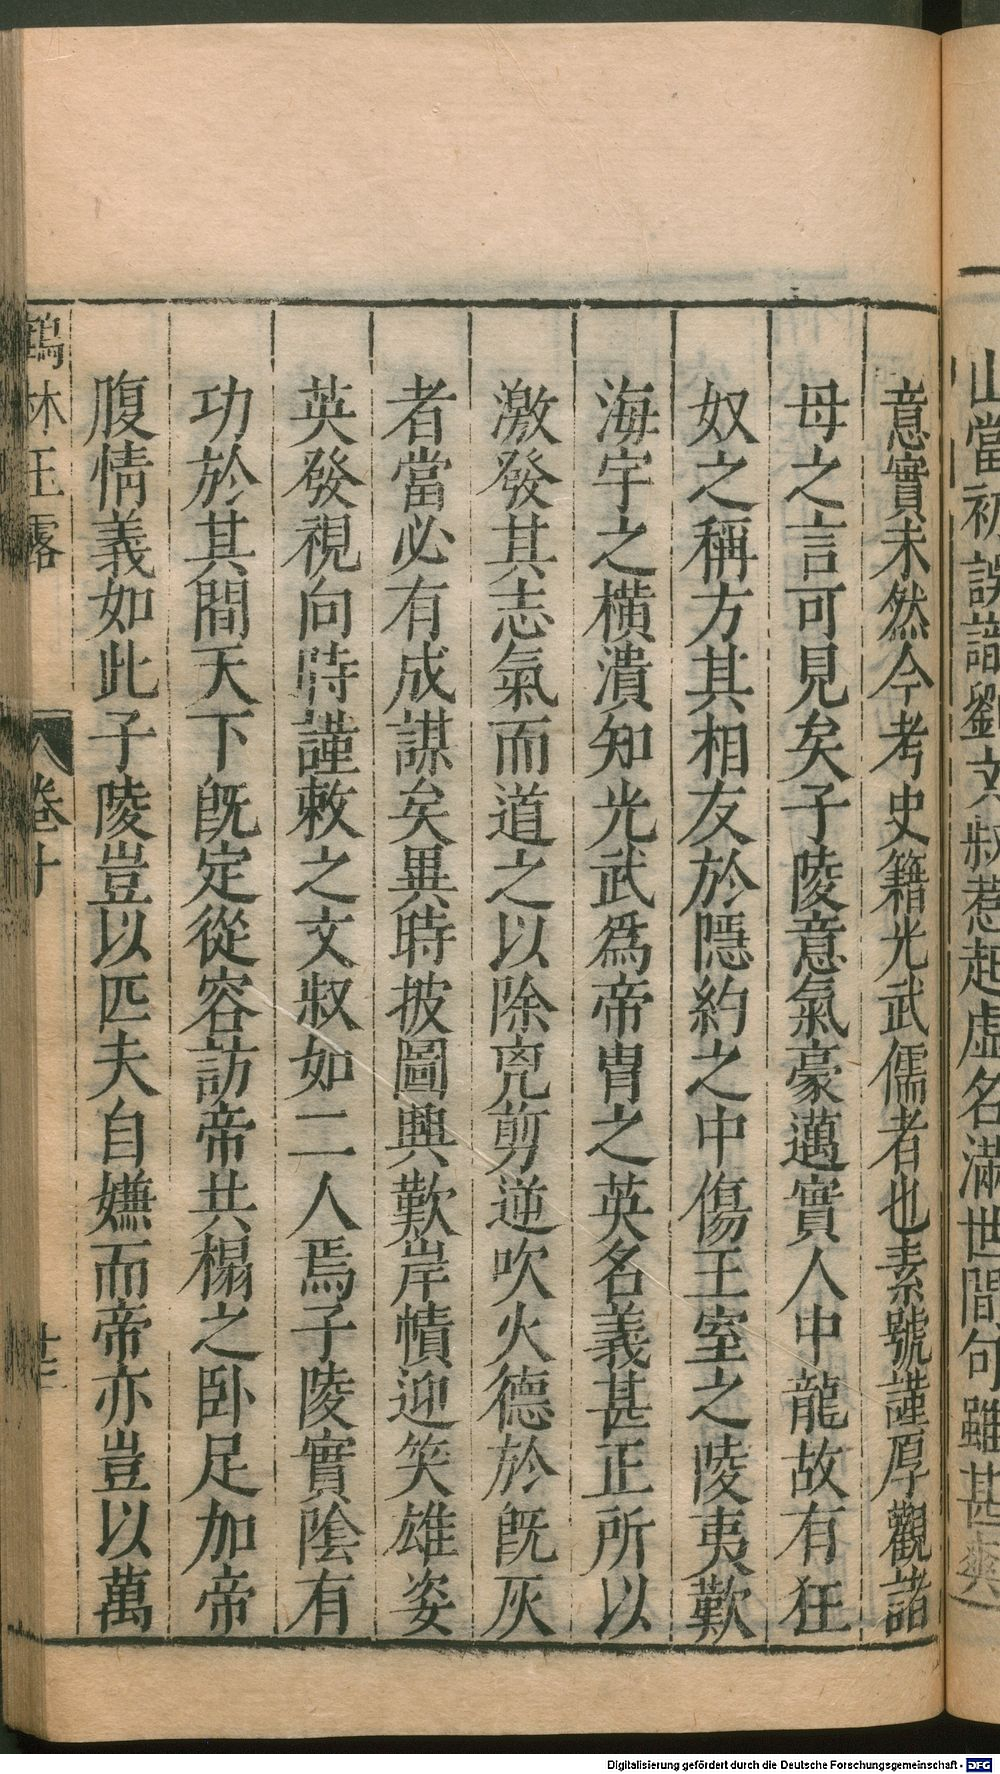 山當初誤識劉文叔惹起虛名滿世間句雖甚爽
意實未然今考史籍光武儒者也素號謹厚觀諸
母之言可見矣子陵意氣豪邁實人中龍故有狂
奴之稱方其相友於隱約之中傷王室之陵夷歎
海宇之橫潰知光武爲帝胄之英名義甚正所以
激發其志氣而道之以除兇剪逆吹火德於旣灰
者當必有成謀矣異時披圖興歎岸幘迎笑雄姿
英發視向時謹敕之文叔如二人焉子陵實陰有
功於其間天下旣定從容訪帝共榻之卧足加帝
腹情義如此子陵豈以匹夫自嫌而帝亦豈以萬
鶴林玉露
卷十
Digitalisierung gefördert durch die Deutsche Forschungsgemeinschaft - DFG